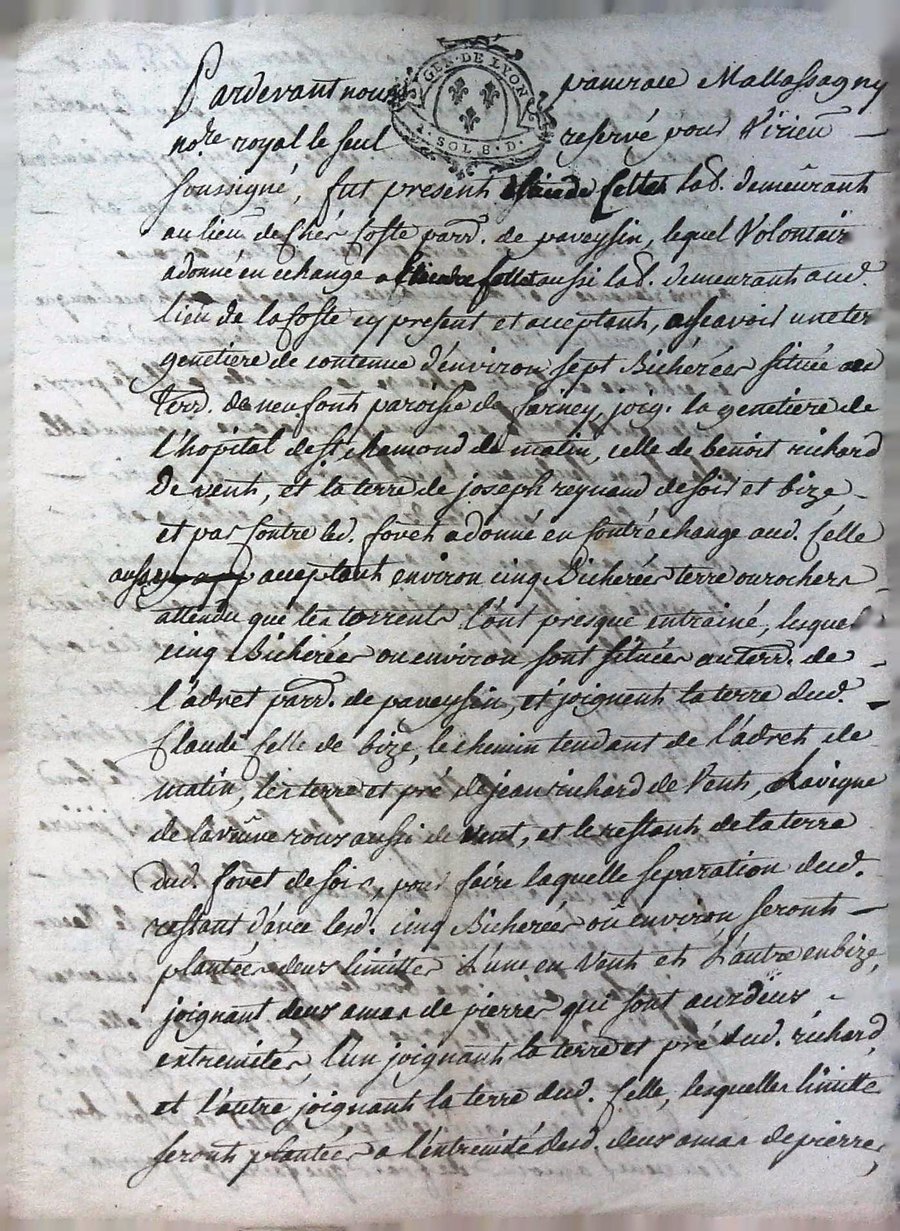 Pardevant nous pancrace Mallassagny
GEN. DE LYON
SOLS 8. D.
no.re royal le seul reservé pour Virieu
soussigné, fut present Claude Celle lab. demeurant
au lieu de Chés Coste parr. de paveysin, lequel Volontair
a donné en echange a fovet aussi lab. demeurant aud.
lieu de la Coste cy present et acceptant, asscavoir une ter
genetiere de contenue d'environ sept Bicherées située au
Terr. de neufont paroisse de farney, joig. la genetiere de
l'hopital de st chamond de matin, celle de benoit richard
de vent, et la terre de joseph reynaud de soir et bize
et par Contre led. fovet a donné en Contréchange aud. Celle
aussy acceptant environ cinq Bicherées terre ou rochers
attendu que les torrents l'ont presque entrainé, lesquel
cinq Bicherées ou environ sont situées au terr. de
l'adret parr. de paveysin, et joignent la terre dud.
Claude Celle de bize, le chemin tendant de l'adret de
matin, les terre et pré de jean richard de Vent, la vigne
de la veuve rous aussi de vent, et le restant de la terre
dud. fovet de soir, pour faire laquelle separation dud.
restant d'avec lesd. cinq Bicherées ou environ seront
plantées deus limittes l'une en Vent et l'autre en bize,
joignant deus amas de pierres qui sont aux deus
extremités, l'un joignant la terre et pré dud. richard,
et l'autre joignant la terre dud. Celle, lesquelles limitte
seront plantées a l'entremité desd. deus amas de pierre,